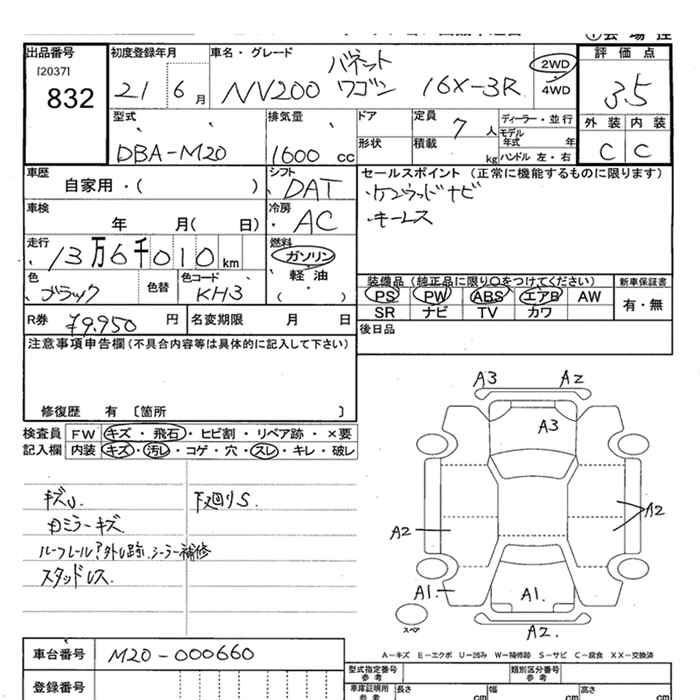 出品番号
[2037]
832
初度登録年月
21 6 月
車名・グレード
バネット
NV200 ワゴン 16X-3R
2WD
4WD
評価点
3.5
外装 内装
C C
型式
DBA-M20
排気量
1600 cc
ドア
形状
定員
7 人
積載
kg
ディーラー・並行
モデル年式 年
ハンドル 左・右
車歴
自家用・( )
シフト
DAT
セールスポイント(正常に機能するものに限ります)
ケンウッドナビ
キーレス
車検
年 月( 日)
冷房
AC
走行
13万6千010 km
燃料
ガソリン
軽油
( )
色
ブラック
色替
色コード
KH3
装備品(純正品に限り○をつけてください)
PS PW ABS エアB AW
SR ナビ TV カワ
新車保証書
有・無
R券 ¥9.950 円
名変期限 月 日
後日品
注意事項申告欄(不具合内容等は具体的に記入して下さい)
修復歴 有 〔箇所 〕
検査員 FW キズ・飛石・ヒビ割・リペア跡・×要
記入欄 内装 キズ・汚レ・コゲ・穴・スレ・キレ・破レ
キズU.
下廻りS.
ミラーキズ.
ルーフレール?外し跡.シーラー補修
スタッドレス.
A3 A2
A3
A2
A2
A1.
A1.
A2.
スペア
A-キズ E-エクボ U-凹み W-補修跡 S-サビ C-腐食 XX-交換済
車台番号 M20-000660
登録番号
型式指定番号
参考
類別区分番号
参考
車庫証明所
参考
長さ cm
幅 cm
高さ cm